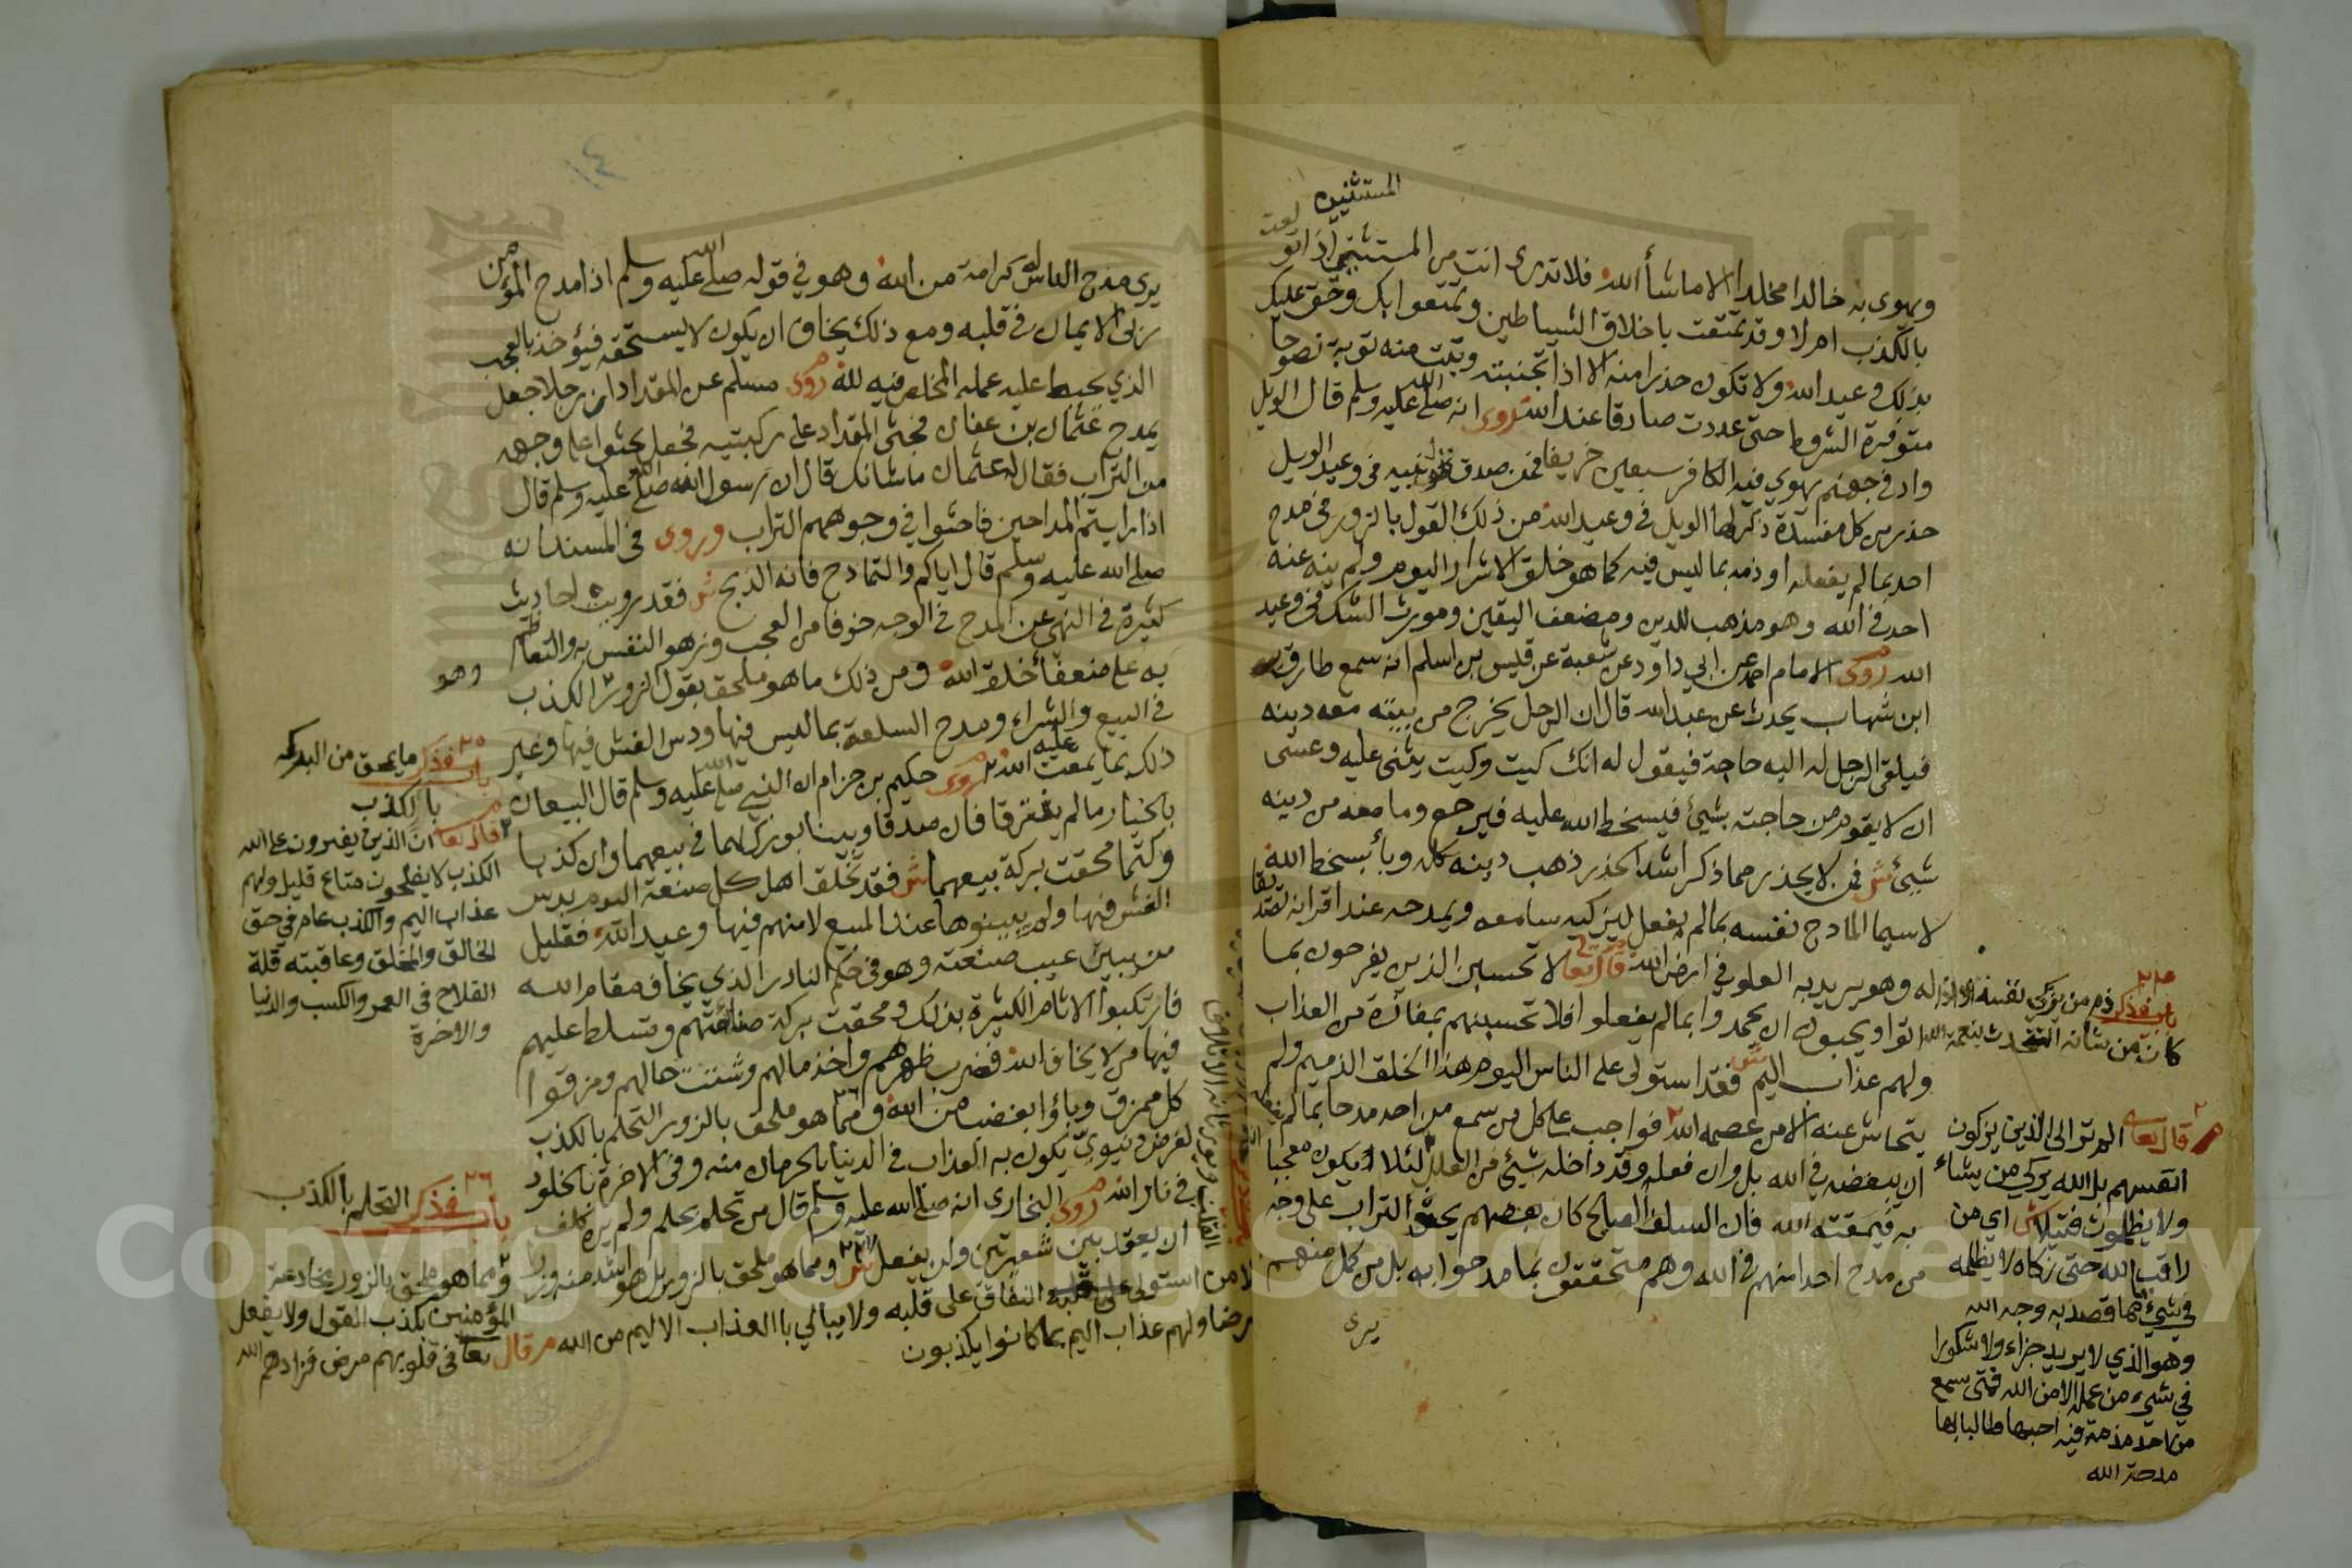 المستثنين
ويهوى به خالدا مخلدا الا ما شأ الله فلا تدرى انت من المستثنين اذا تو
بالكذب ام لا وقد تمتقت باخلاق الشياطين وتمتعوا بك وحق عليك
بذلك وعيد الله ولا تكون حذرا منه الا اذا تجنبته وتبت منه توبة نصوحا
متوفرة الشروط حتى عددت صادقا عند الله روى انه صلى الله عليه وسلم قال الويل
واد في جهنم يهوي فيه الكافر سبعين خريفا فمن صدق نبيه في وعيد الويل
حذر من كل مفسدة ذكر لها الويل في وعيد الله من ذلك القول بالزور في مدح
احد بما لم يفعله او ذمه بما ليس فيه كما هو خلق الاشرار اليوم ولم ينه عنه
احد في الله وهو مذهب للدين ومضعف اليقين ومورث الشك في وعيد
الله روى الامام احمد عن ابي داود عن شعبة عن قيس بن اسلم انه سمع طارق
ابن شهاب يحدث عن عبد الله قال ان الرجل يخرج من بيته معه دينه
فيلقى الرجل له اليه حاجة فيقول له انك كيت وكيت يثنى عليه وعسى
ان لا يقوم من حاجته بشيئ فيسخط الله عليه فيرجع وما معه من دينه
شيئ ش فمن لا يحذر مما ذكر اشد الحذر ذهب دينه كله وبأ بسخط الله
لا سيما المادح نفسه بما لم يفعل ليزكيه سامعه ويمدحه عند اقرانه
له وهو يريد به العلو في ارض الله قال تعا لا تحسبن الذين يفرحون بما
اتوا ويحبون ان يحمدوا بما لم يفعلوا فلا تحسبنهم بمفازة من العذاب
ولهم عذاب اليم ش فقد استولى على الناس اليوم هذا الخلق الذميم ولم
يتحاش عنه الا من عصمه الله فواجب على كل من سمع من احد مدحا بما لم يفعل
ان يبغضه في الله بل وان فعله وقد داخله شيئ من العلل لئلا يكون معجبا
به فيمقته الله فان السلف الصالح كان بعضهم يحثو التراب على وجه
من مدح احدا منهم في الله وهم متحققون بما مدحوا به بل من كمل منهم
يرى
باب فذكر ذم من يزكى نفسه الا اذا
كان من شانه التحدث بنعمة الله
قال تعالى الم تر الى الذين يزكون
انفسهم بل الله يزكي من يشاء
ولا يظلمون فتيلا ش اي من
راقب الله حتى زكاه لا يظلمه
في شيئ مما قصد به وجه الله
وهو الذي لا يريد جزاء ولا شكورا
في شيء من عمله الا من الله فمتى سمع
من احد مذمة فيه احبها طالبا بها
مدحة الله
١٤
يرى مدح الناس له كرامة من الله وهو في قوله صلى الله عليه وسلم اذا مدح المؤمن
ربى الايمان في قلبه ومع ذلك يخاف ان يكون لا يستحقه فيؤخذ بالعجب
الذي يحبط عليه عمله المخلص فيه لله روى مسلم عن المقداد ان رجلا جعل
يمدح عثمان بن عفان فجثى المقداد على ركبتيه فجعل يحثوا على وجهه
من التراب فقال له عثمان ما شانك قال ان رسول الله صلى الله عليه وسلم قال
اذا رايتم المداحين فاحثوا في وجوههم التراب وروى في المسند انه
صلى الله عليه وسلم قال اياكم والتمادح فانه الذبح ش فقد رويت احاديث
كثيرة في النهي عن المدح في الوجه خوفا من العجب وزهو النفس به والتعاظم
به على ضعفأ خلق الله ومن ذلك ما هو ملحق بقول الزور الكذب
وهو
في البيع والشراء ومدح السلعة بما ليس فيها ودس الغش فيها وغير
ذلك بما يمقت الله عليه روى حكيم بن حزام ان النبي صلى الله عليه وسلم قال البيعان
بالخيار ما لم يفترقا فان صدقا وبينا بورك لهما في بيعهما وان كذبا
وكتما محقت بركة بيعهما ش فقد تخلق اهل كل صنعة اليوم بدس
الغش فيها ولم يبينوها عند المبيع لامنهم فيها وعيد الله فقليل
من يبين عيب صنعته وهو في حكم النادر الذي يخاف مقام الله
فارتكبوا الاثام الكثيرة بذلك ومحقت بركة صنائعهم وتسلط عليهم
فيها من لا يخاف الله فضرب ظهرهم واخذ مالهم وشتت حالهم ومزقوا
كل ممزق وبأوا بغضب من الله ومما هو ملحق بالزور التحلم بالكذب
لغرض دنيوي يكون به العذاب في الدنيا بالحرمان منه وفي الاخرة بالخلود
في نار الله روى البخارى انه صلى الله عليه وسلم قال من تحلم بحلم ولم يره كلف
ان يعقد بين شعيرتين ولن يفعل ش ومما هو ملحق بالزور بل هو اشد منه وزرا
لا من استولى النفاق على قلبه ولا يبالي بالعذاب الاليم من الله مر قال تعا في قلوبهم مرض فزادهم الله
مرضا ولهم عذاب اليم بما كانوا يكذبون
٢٥
باب فذكر ما يمحق من البركة
بالكذب
قال تعا ان الذين يفترون على الله
الكذب لا يفلحون متاع قليل ولهم
عذاب اليم والكذب عام في حق
الخالق والمخلق وعاقبته قلة
الفلاح في العمر والكسب والدنيا
والاخرة
٢٦
باب فذكر التحلم بالكذب
ومما هو ملحق بالزور مخادعة
المؤمنين بكذب القول ولا يفعل
Copyright © King Saud University